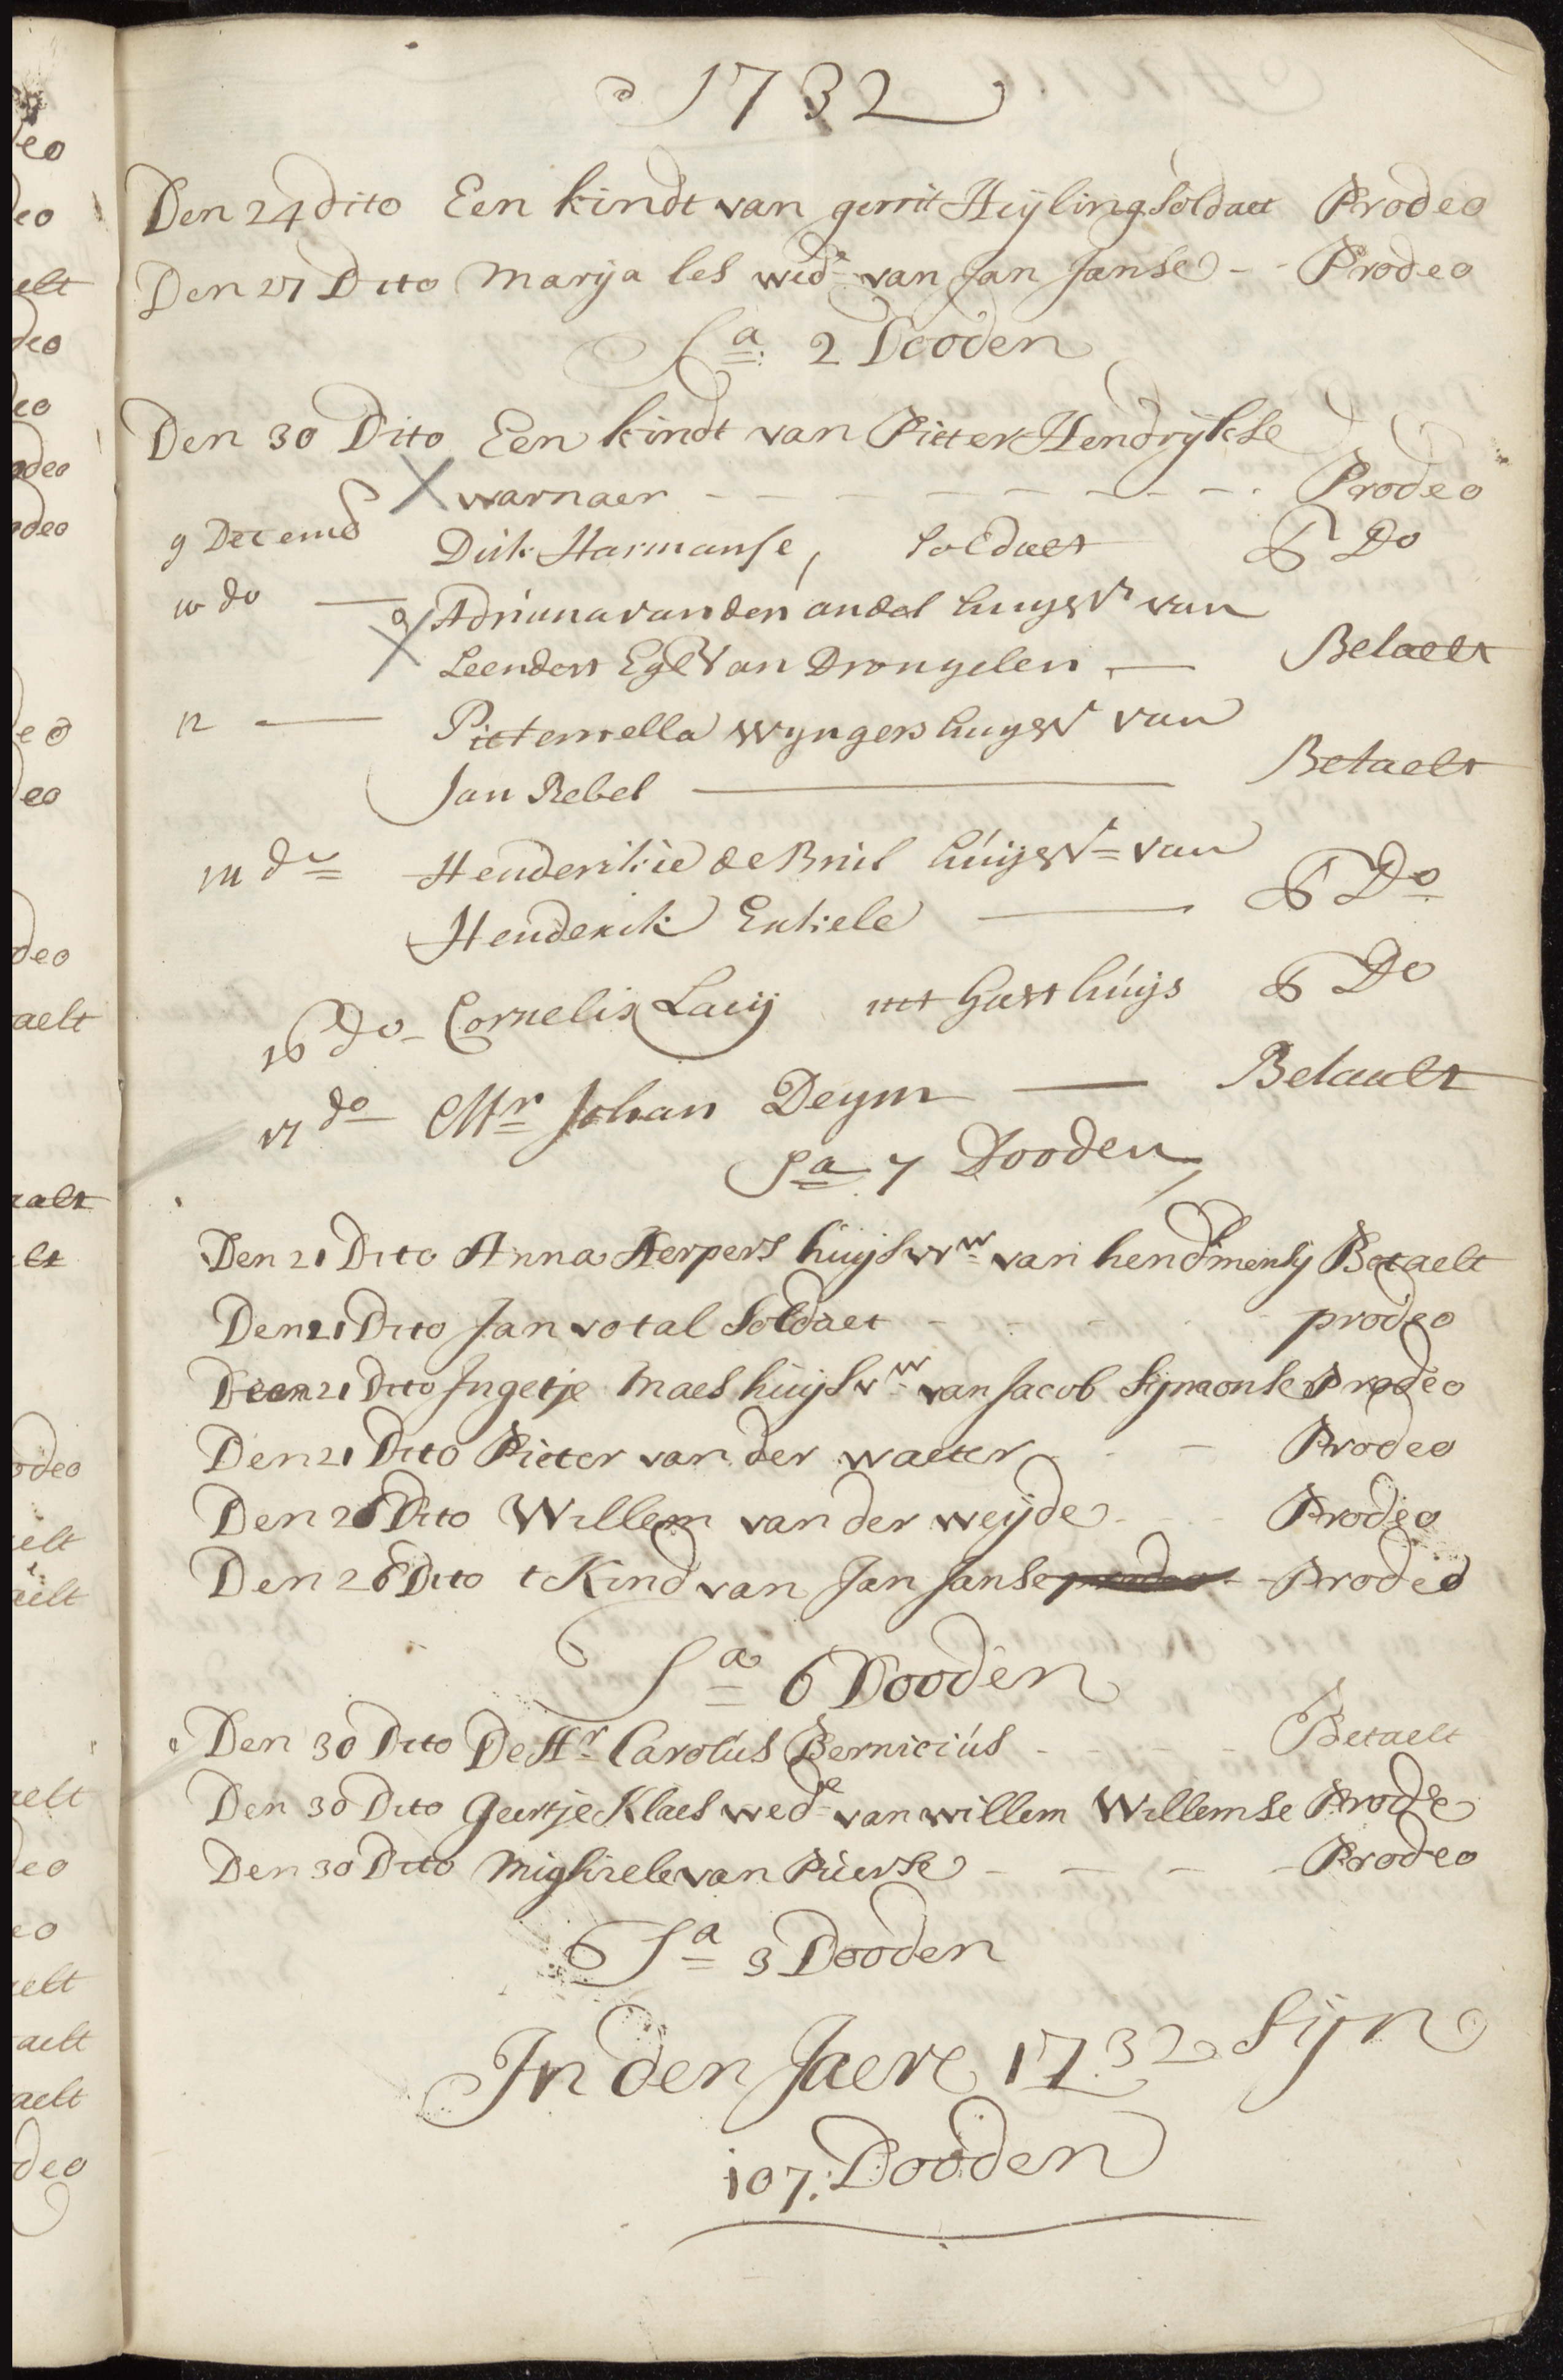 1732
Den 24 dito Een kindt van gerrit Heijling soldaet Prodeo
Den 27 Dito Marija les wede van Jan Janse - - Prodeo
Sa. 2 Dooden
Den 30 Dito Een kindt van Pieter Hendrijkse
warnaer - - - - - - - Prodeo
9 Decemb Dirk Harmanse, soldaet Do
10 do — Adriana van den andel huijsvr van
Leendert Egb Van Drongelen — Betaelt
12 — Pieternella Wyngers huysvr van
Jan Rebel — Betaelt
14 do Henderikie de Bruil huijsvr van
Henderik Enkele — Do
16 do Cornelis Lauij uit Gasthuijs Do
17 do Mr Johan Deym — Betaelt
Sa 7 Dooden
Den 21 Dito Anna Herpers huijsvrw van hend mensij Betaelt
Den 21 Dito Jan votal Soldaet - - - prodeo
Den 21 Dito Ingetje Maes huijsvrw van Jacob Sijmonse Prodeo
Den 21 Dito Pieter van der waeter - - Prodeo
Den 26 Dito Willem van der weijde - - Prodeo
Den 26 Dito t Kind van Jan Janse - Prodeo
Sa 6 Dooden
Den 30 Dito De Hr Carolus Bernicius - - - - Betaelt
Den 30 Dito Geertje Klaes wede van willem Willemse Prode
Den 30 Dito van Puerse - - - - Prodeo
Sa 3 Dooden
In den Jaere 1732 Sijn
107: Dooden
eo
eo
elt
deo
eo
odeo
odeo
eo
eo
deo
aelt
aelt
lt
odeo
elt
aelt
aelt
deo
eo
elt
aelt
aelt
deo